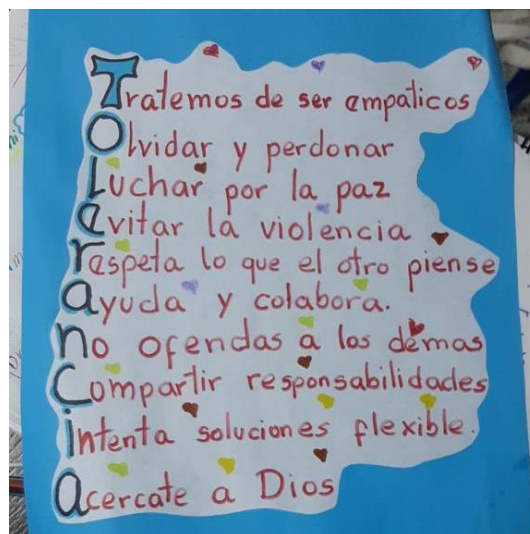 Tratemos de ser empaticos
Olvidar y perdonar
Luchar por la paz
evitar la violencia
respeta lo que el otro piense
ayuda y colabora.
no ofendas a los demas
Compartir responsabilidades
intenta soluciones flexible.
acercate a Dios